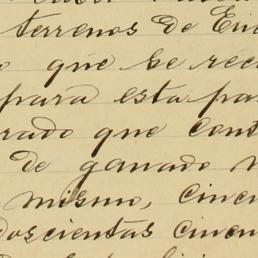 terrenos de En
que se rec
para esta pa
rado que cont
de ganado
mismo, cincu
doscientas cincu